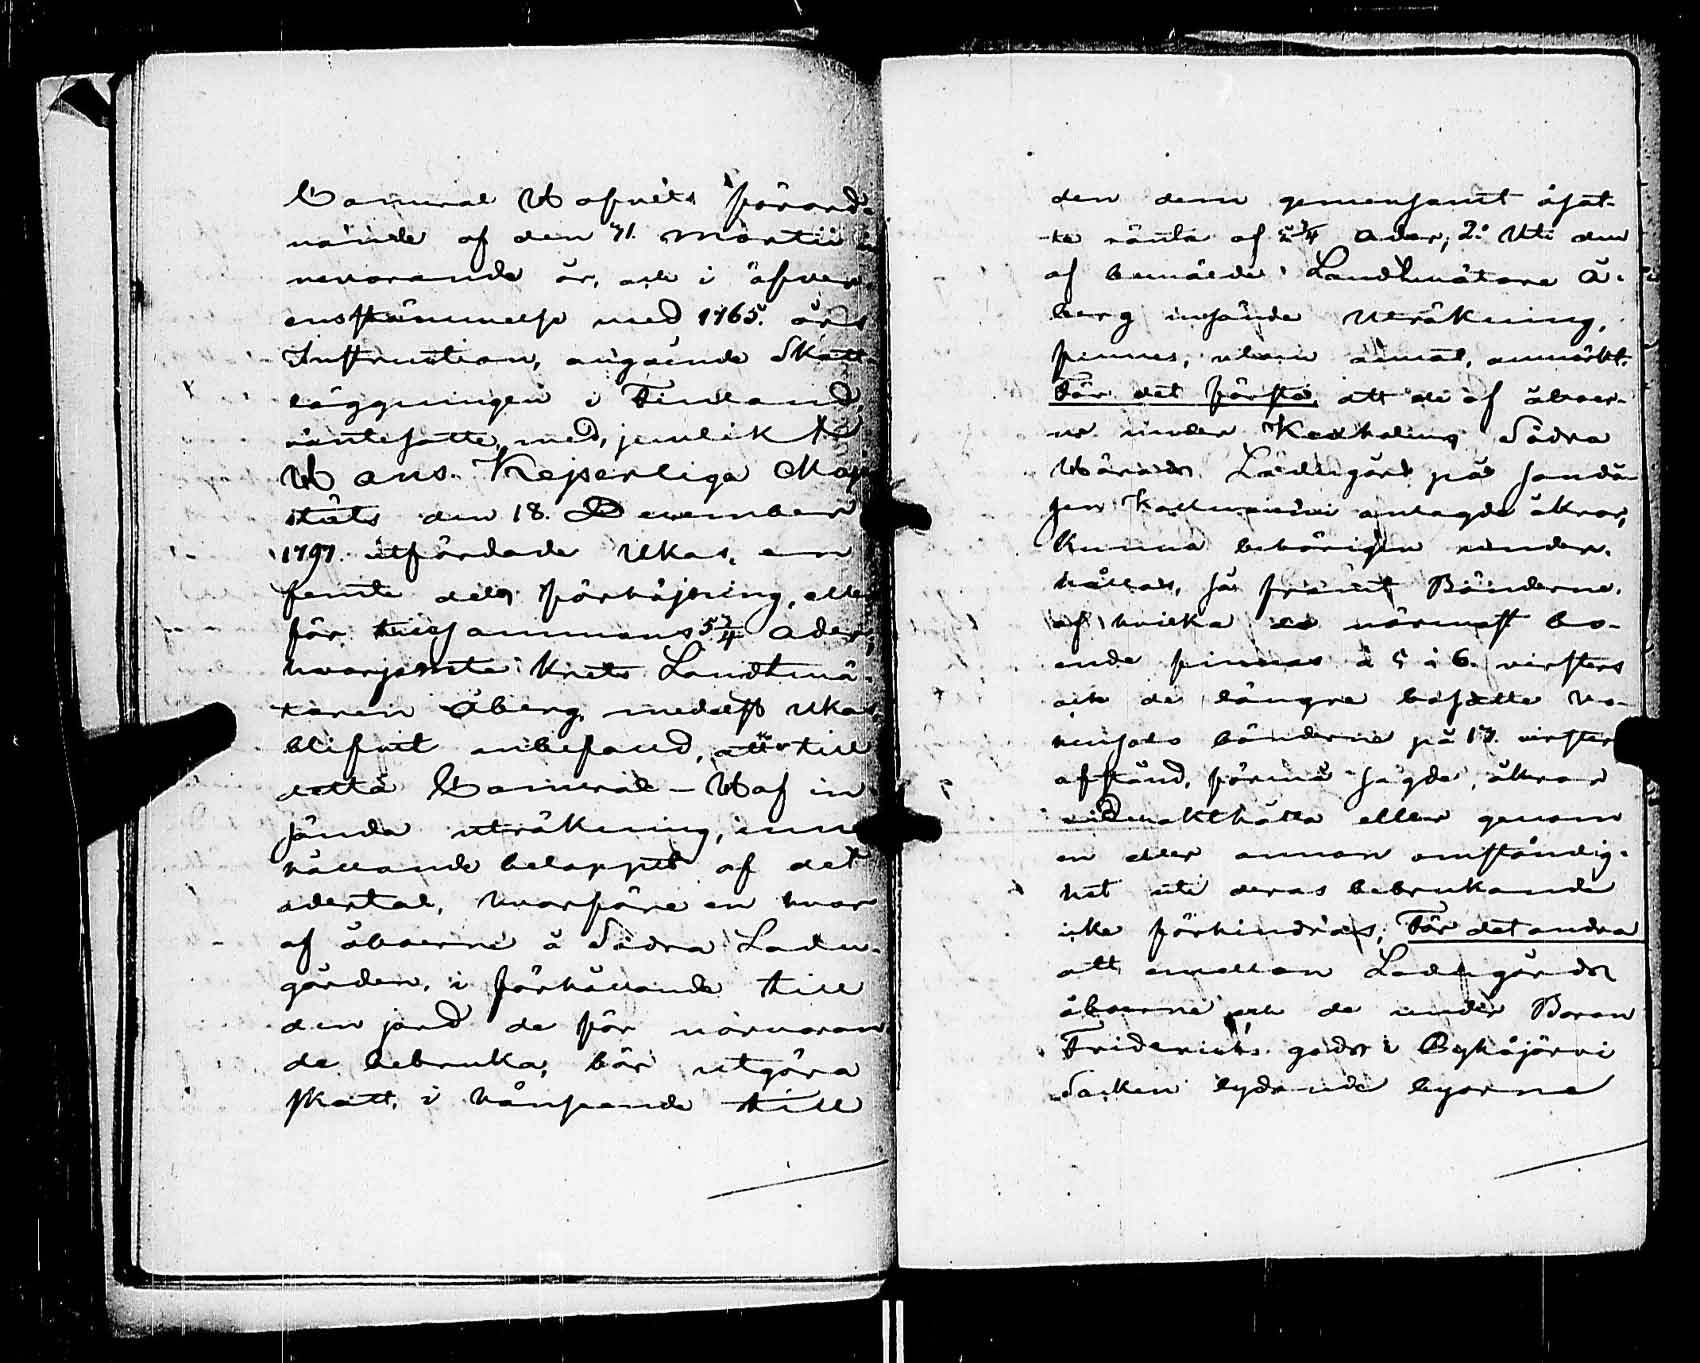 Cameral Hofvets förord-
nande af den 71. Martii in
nevarande år, och i öfver-
ensstämmelse med 1765. års
Instruction, angående Skatt-
läggningen i Finland,
räntesatte, med, jemlikt
Hans Kejserliga Maje
stäts den 18. December
1797. utfärdade Ukas, en
femte dels förhöjning, eller
för tillsammans 5¾ Ader,
hvarjemte Krets Landtmä-
taren Åberg, medelst Ukas
blifvit anbefald, att till
detta Cameral-Hof in
sända uträkning, inne
hållande beloppet af det
adertal, hvarföre en hvar
af åboerne å Södra Ladu-
gården, i förhållande till
den jord de för närvaran
de bebruka, bör utgöra
skatt, i hänseende till
den dem gemensamt åsat-
te ränta af Ader; 2:o Uti den
af bemälde Landtmätare Å-
berg insände Uträkning,
finnes, utom annat, anmärkt:
För det första, att de af åboer-
ne under Kexholms Södra
Ladugård på
anlagde åkrar,
kunna behörigen under-
hållas, så framt Bönderne,
af hvilka de närmast bo-
ende finnas à 5 à 6. virsters
och de längre bosatte
bönderne på 17. virsters
afstånd, förmå sagde åkrar
vidmakthålla eller genom
en eller annan omständig-
het uti deras bebrukande
icke förhindras; För det andra
att emellan Ladugårds
åboerne och de under Baron
Fridericks gods i Pyhäjärvi
Socken lydande byarne